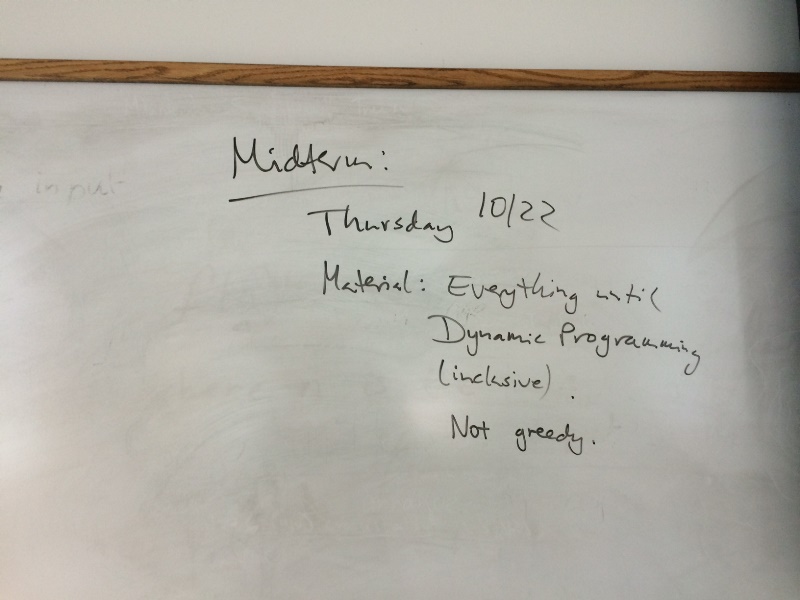 Midterm:
input
Thursday 10/22
Material: Everything until
Dynamic Programming
(inclusive).
Not greedy.